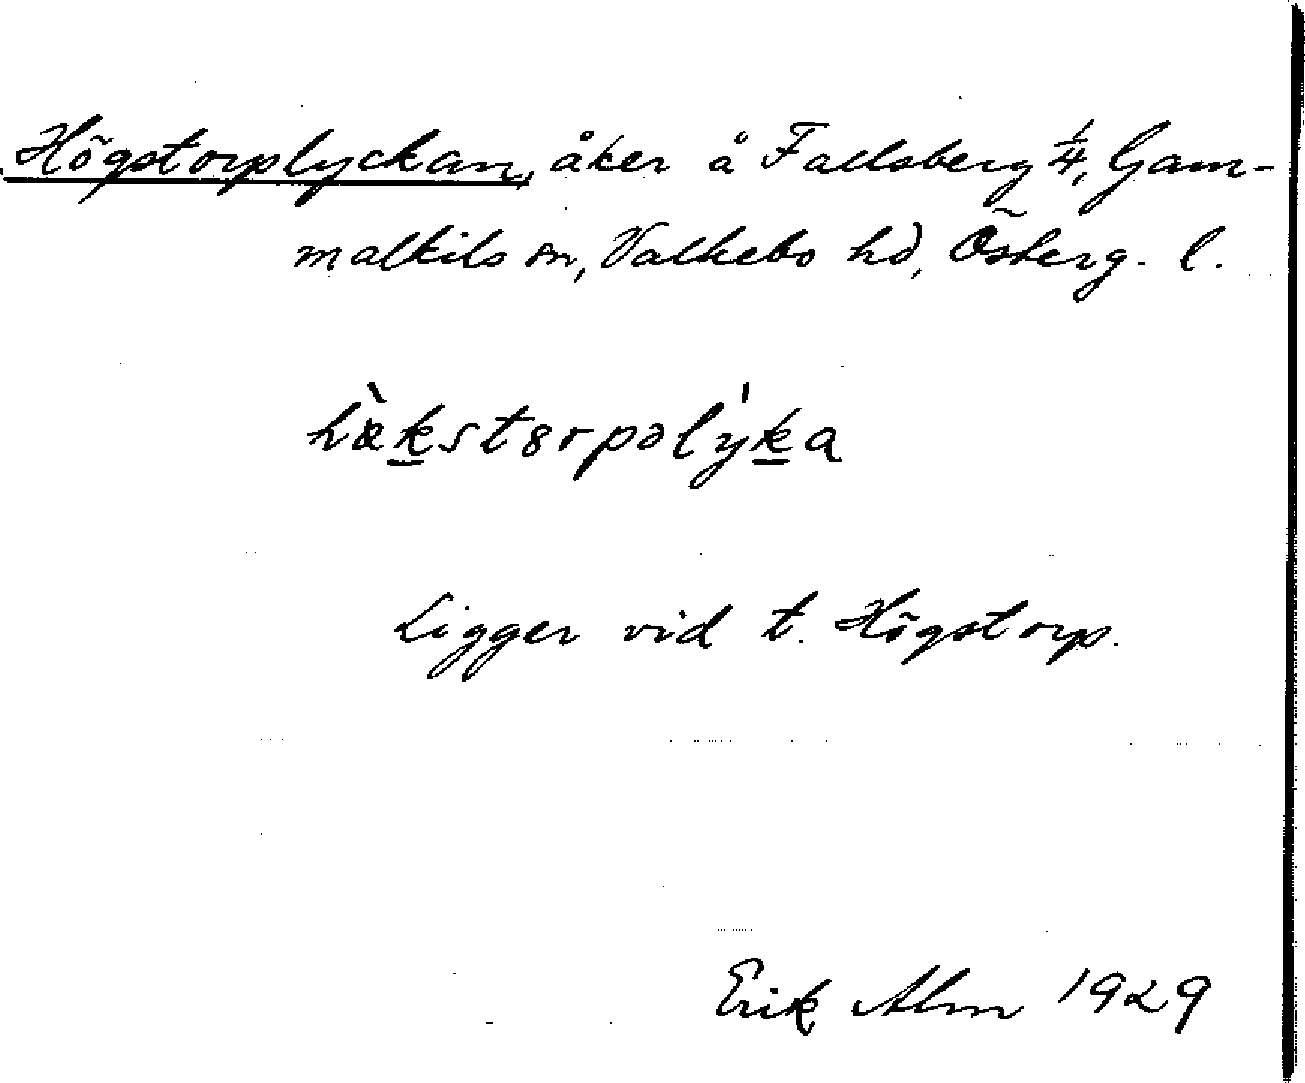 Högstorplyckan, åker å Fallsberg 1/4, Gam-
malkils sn, Valkebo hd, Österg. l.
hæ̀kstɵrpəlýka
Ligger vid t. Högstorp.
Erik Alm 1929